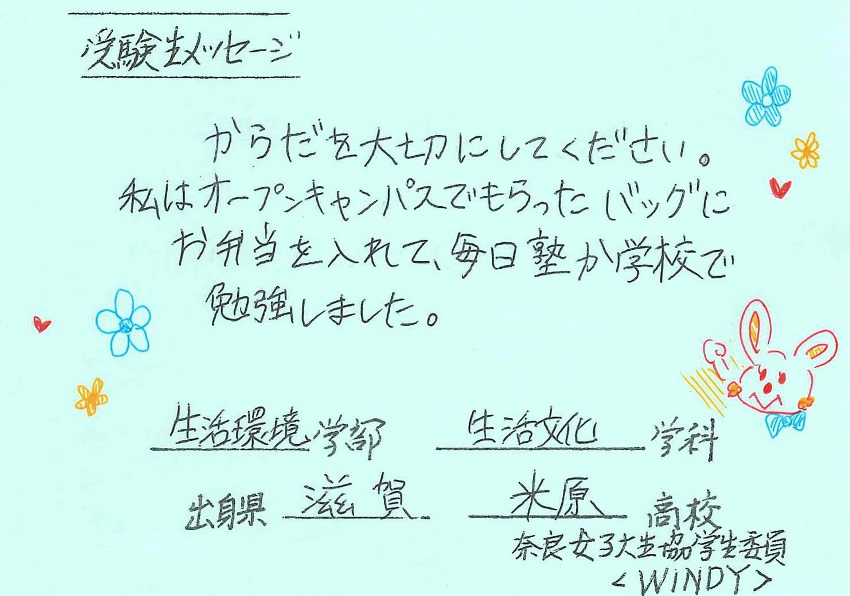 受験生メッセージ
からだを大切にしてください。
私はオープンキャンパスでもらったバッグに
お弁当を入れて、毎日塾か学校で
勉強しました。
生活環境学部 生活文化学科
出身県 滋賀 米原高校
奈良女子大生協学生委員
<WiNDY>